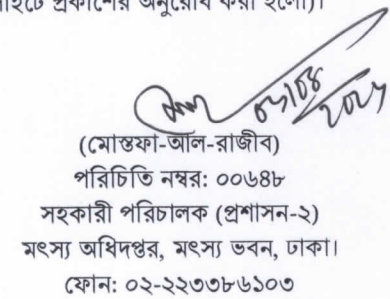 প্রকাশের অনুরোধ করা হলো)।
(মোস্তফা-আল-রাজীব)
পরিচিতি নম্বর: ০০৬৪৮
সহকারী পরিচালক (প্রশাসন-২)
মৎস্য অধিদপ্তর, মৎস্য ভবন, ঢাকা।
ফোন: ০২-২২৩৩৮৬১০৩